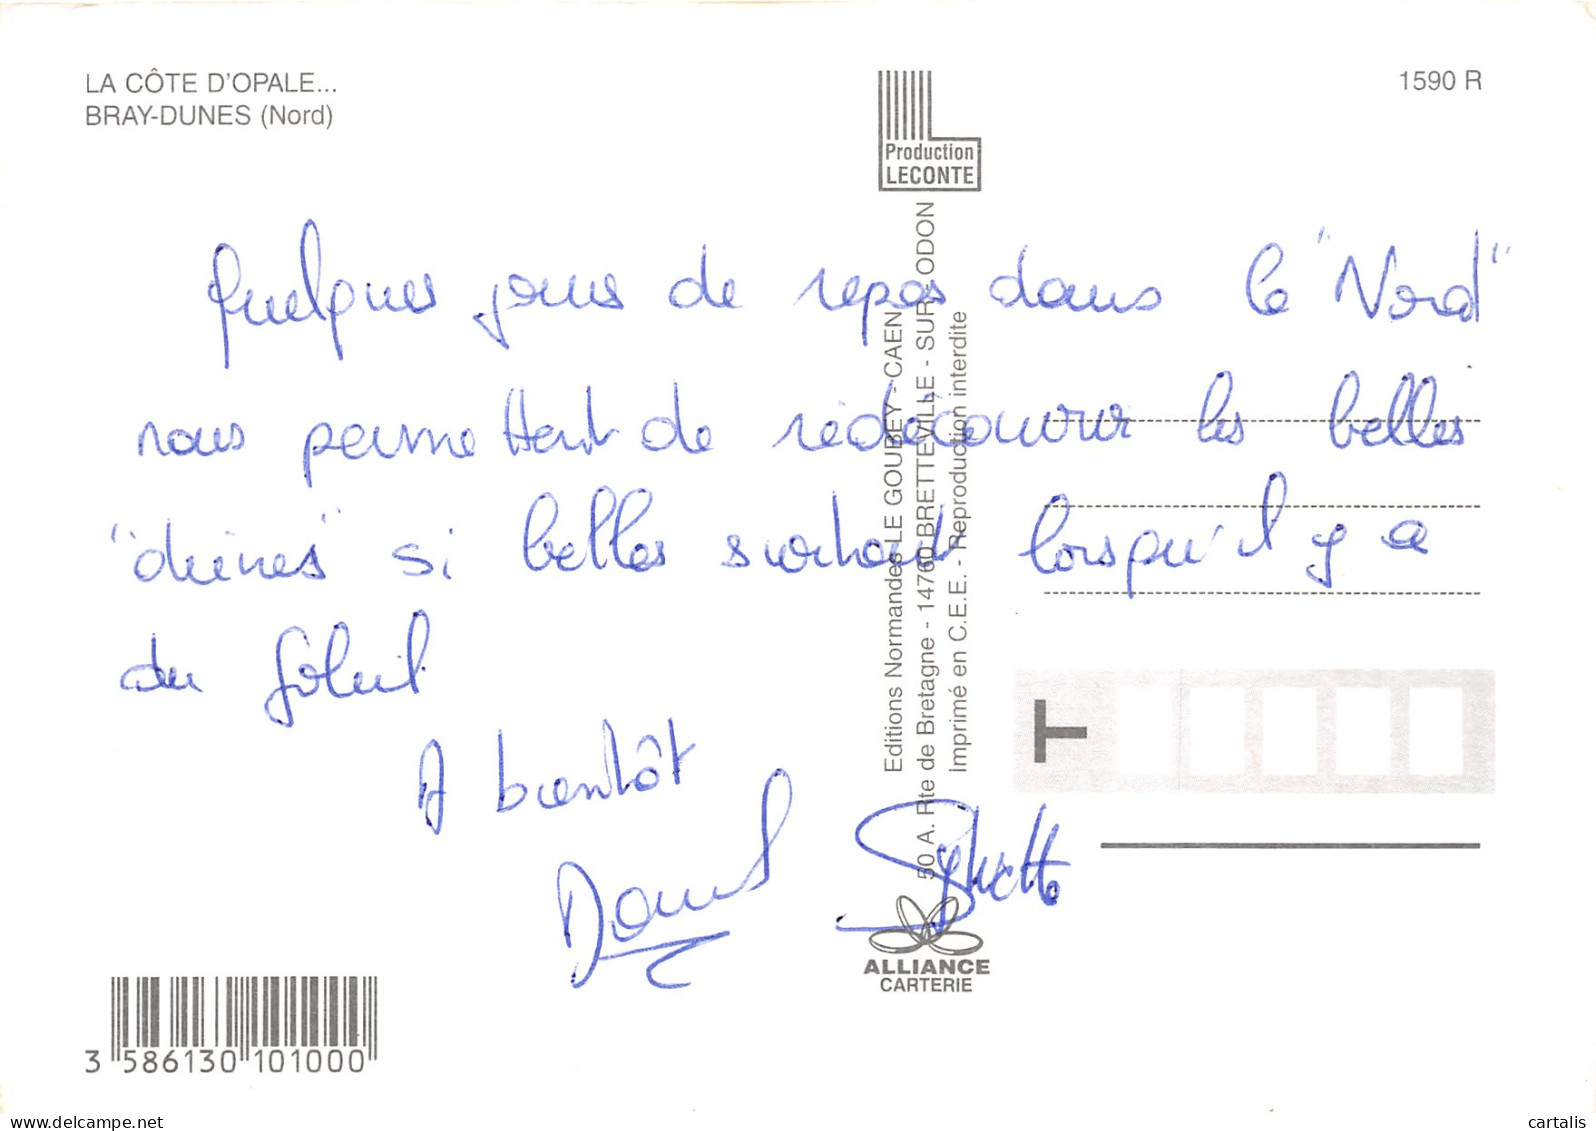 LA CÔTE D'OPALE...
BRAY-DUNES (Nord)
1590 R
Production
LECONTE
Quelques jours de repos dans le "Nord"
nous permettent de redécouvrir les belles
"dunes" si belles surtout lorsqu'il y a
du Soleil
A bientôt
Daniel Sylvette
Editions Normandes LE GOUBEY - CAEN
50 A. Rte de Bretagne - 14760 BRETTEVILLE - SUR - ODON
Imprimé en C.E.E. - Reproduction interdite
T
ALLIANCE
CARTERIE
3 586130 101000
delcampe.net
cartalis